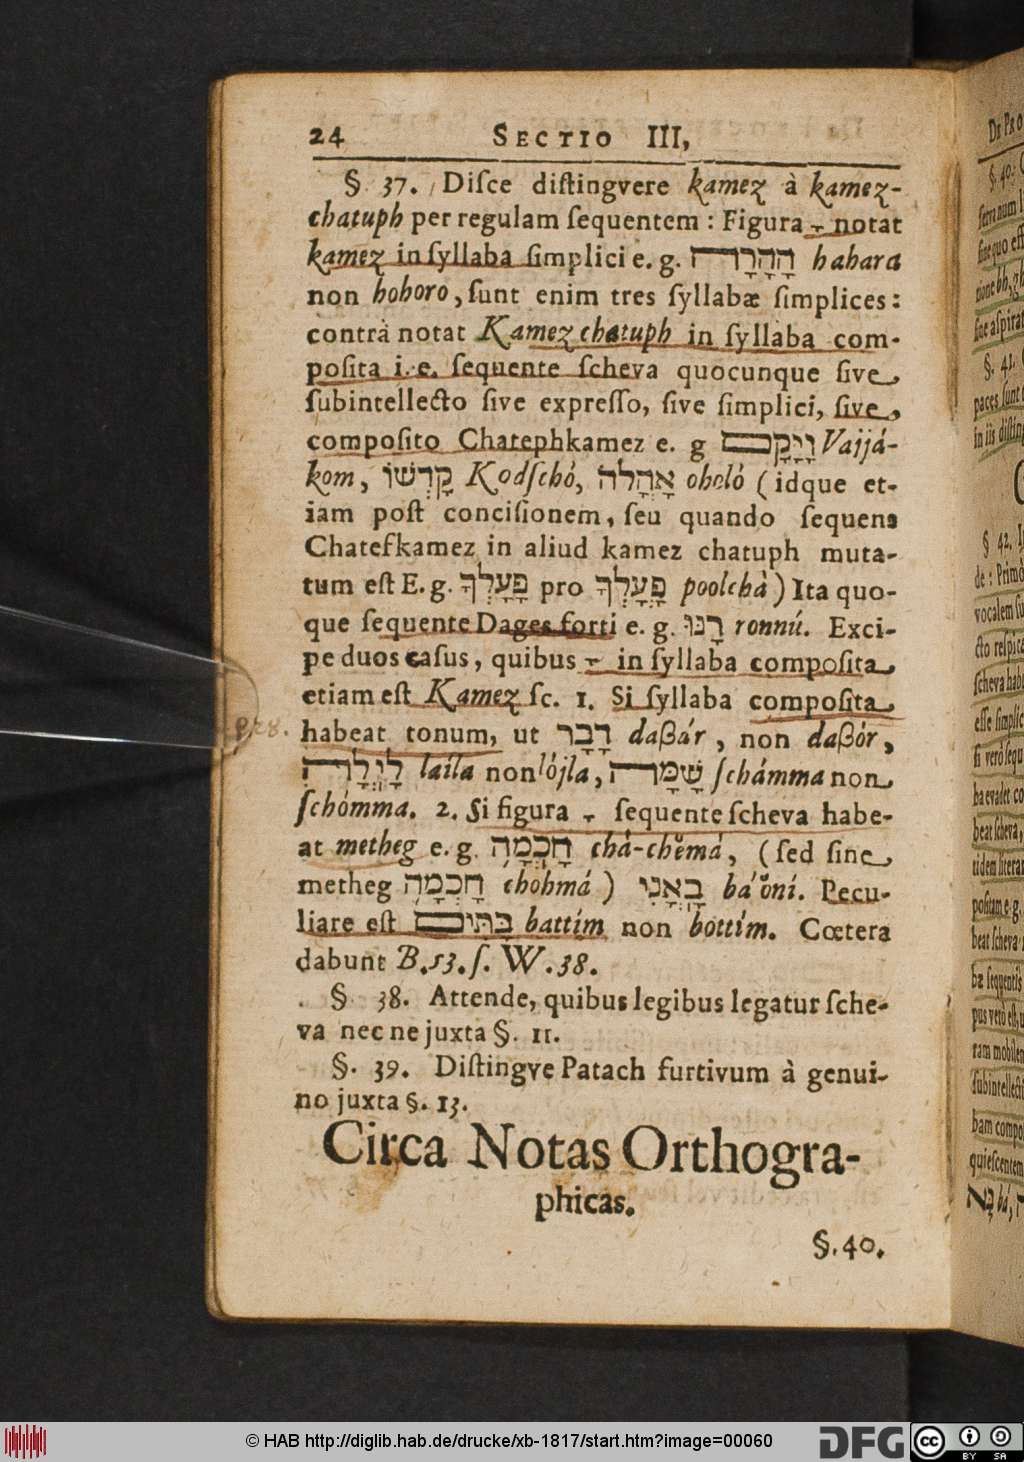 24 SECTIO III,
§ 37. Diſce diſtingvere kamez à kamez-
chatuph per regulam ſequentem : Figura ־ָ notat
kamez in ſyllaba ſimplici e. g. הָהָרָה hahara
non hohoro, ſunt enim tres ſyllabæ ſimplices:
contrà notat Kamez chatuph in ſyllaba com-
poſita i. e. ſequente ſcheva quocunque ſive
ſubintellecto ſive expreſſo, ſive ſimplici, ſive,
compoſito Chatephkamez e. g וָיָּקָם Vaijá-
kom, קָדְשׁוֹ Kodſchò, אָהֳלה oholó (idque et-
iam poſt conciſionem, ſeu quando ſequens
Chatefkamez in aliud kamez chatuph muta-
tum eſt E. g. פָּעָלְךָ pro פָּעֳלְךָ poolchà) Ita quo-
que ſequente Dages forti e. g. רָנּוּ ronnú. Exci-
pe duos caſus, quibus ־ָ in ſyllaba compoſita
etiam eſt Kamez ſc. 1. Si ſyllaba compoſita
habeat tonum, ut דָּבָר daβár, non daβór,
לָיְלָה laíla non lójla, שָׁמָּה ſchámma non
ſchómma. 2. Si figura ־ָ ſequente ſcheva habe-
at metheg e. g. חָֽכְמָה chá-chĕmá, (ſed ſine
metheg חָכְמָה chohmá) בָּאֳנִי bá'ŏní. Pecu-
liare eſt בָּתִּים battím non bottím. Cœtera
dabunt B. 53. ſ. W. 38.
§ 38. Attende, quibus legibus legatur ſche-
va nec ne juxta §. 11.
§. 39. Diſtingve Patach furtivum à genui-
no juxta §. 13.
Circa Notas Orthogra-
phicas.
§. 40.
© HAB http://diglib.hab.de/drucke/xb-1817/start.htm?image=00060
DFG
cc BY SA